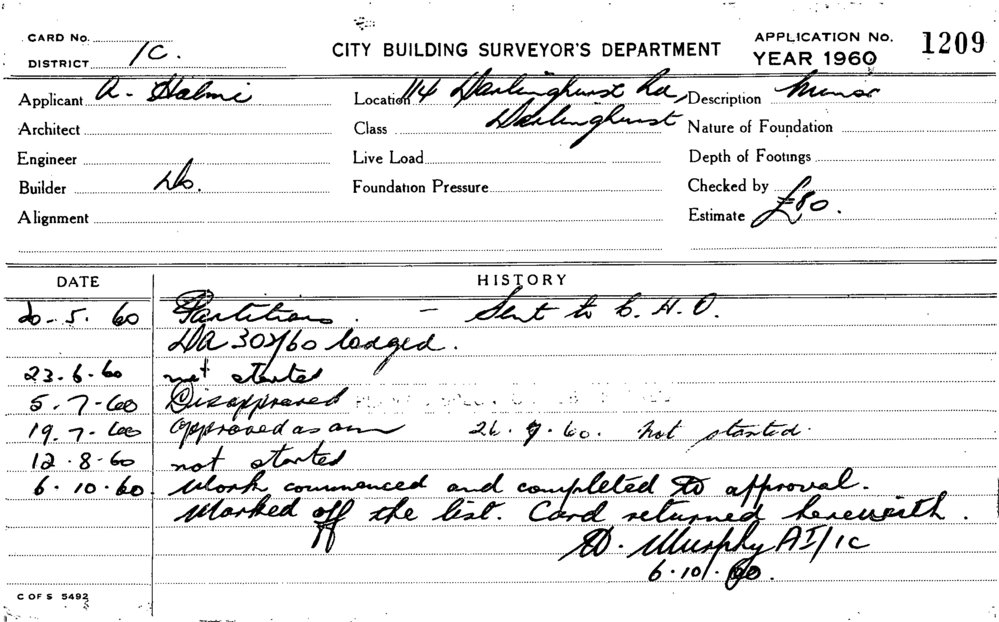 CARD No.
DISTRICT 1C.
CITY BUILDING SURVEYOR'S DEPARTMENT
APPLICATION No. 1209
YEAR 1960
Applicant A. Halmi
Location 114 Darlinghurst Rd, Darlinghurst
Description Minor
Architect
Class
Nature of Foundation
Engineer
Live Load
Depth of Footings
Builder Do.
Foundation Pressure
Checked by
Alignment
Estimate £80.
DATE HISTORY
20.5.60 Partitions. - Sent to C.H.O.
DA 302/60 lodged.
23.6.60 not started
5.7.60 Disapproved
19.7.60 Approved as am 26.9.60. not started.
12.8.60 not started
6.10.60 Work commenced and completed to approval.
Marked off the list. Card returned herewith.
D. Murphy AI/1C
6.10.60.
C OF S 5492